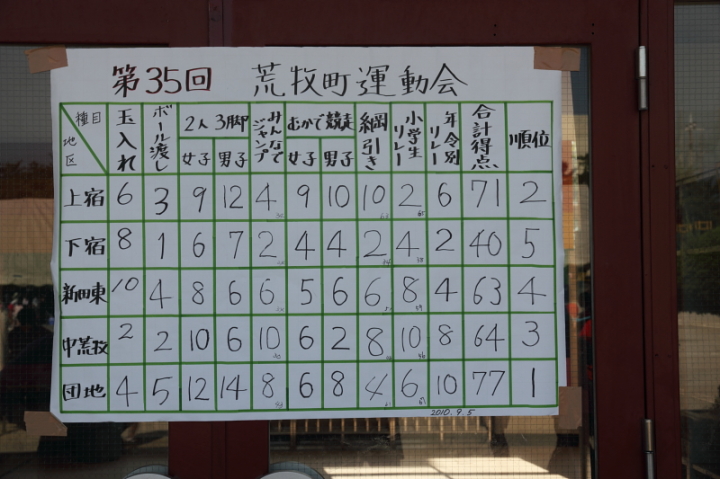 第35回 荒牧町運動会
種目 地区 玉入れ ボール渡し 2人3脚 みんなでジャンプ むかで競走 綱引き 小学生リレー 年令別リレー 合計得点 順位
女子 男子 女子 男子
上宿 6 3 9 12 4 9 10 10 2 6 71 2
下宿 8 1 6 7 2 4 4 2 4 2 40 5
新田東 10 4 8 6 6 5 6 6 8 4 63 4
中荒牧 2 2 10 6 10 6 2 8 10 8 64 3
団地 4 5 12 14 8 6 8 4 6 10 77 1
2010.9.5